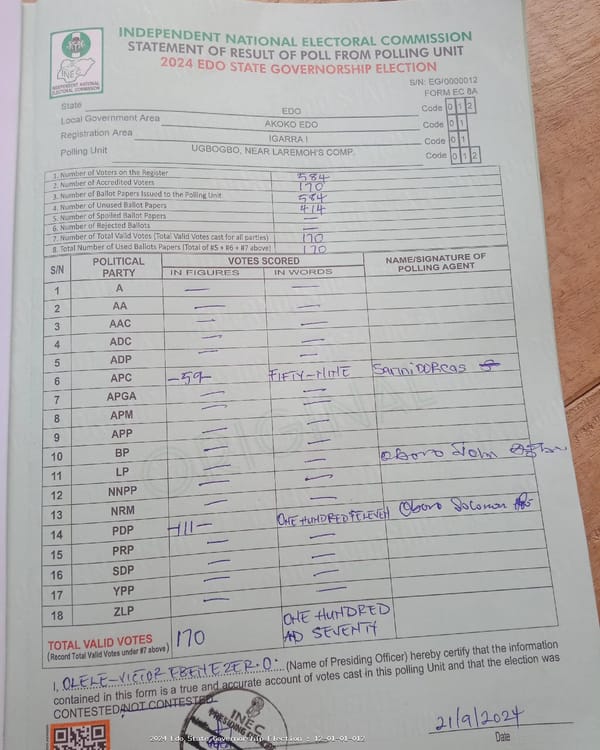 INDEPENDENT NATIONAL ELECTORAL COMMISSION
STATEMENT OF RESULT OF POLL FROM POLLING UNIT
2024 EDO STATE GOVERNORSHIP ELECTION
INEC
INDEPENDENT NATIONAL ELECTORAL COMMISSION
S/N: EG/0000012
FORM EC 8A
State EDO Code 0 1 2
Local Government Area AKOKO EDO Code 0 1
Registration Area IGARRA I Code 0 1
Polling Unit UGBOGBO, NEAR LAREMOH'S COMP. Code 0 1 2
1. Number of Voters on the Register 584
2. Number of Accredited Voters 170
3. Number of Ballot Papers Issued to the Polling Unit 584
4. Number of Unused Ballot Papers 414
5. Number of Spoiled Ballot Papers —
6. Number of Rejected Ballots —
7. Number of Total Valid Votes (Total Valid Votes cast for all parties) 170
8. Total Number of Used Ballots Papers (Total of #5 + #6 + #7 above) 170
S/N POLITICAL PARTY VOTES SCORED NAME/SIGNATURE OF POLLING AGENT
IN FIGURES IN WORDS
1 A — —
2 AA — —
3 AAC — —
4 ADC — —
5 ADP — —
6 APC -59- FIFTY-NINE Sanni DORcas
7 APGA — —
8 APM — —
9 APP — —
10 BP — —
11 LP — — Oboro John
12 NNPP — —
13 NRM — —
14 PDP -111- ONE HUNDRED & ELEVEN Oboro Solomon
15 PRP — —
16 SDP — —
17 YPP — —
18 ZLP —
TOTAL VALID VOTES 170 ONE HUNDRED AD SEVENTY
(Record Total Valid Votes under #7 above)
I, OLELE-VICTOR EBENEZER.O. (Name of Presiding Officer) hereby certify that the information
contained in this form is a true and accurate account of votes cast in this polling Unit and that the election was
CONTESTED/NOT CONTESTED
INEC
21/9/2024
Date
2024 Edo State Governorship Election : 12-01-01-012
ORIGINAL